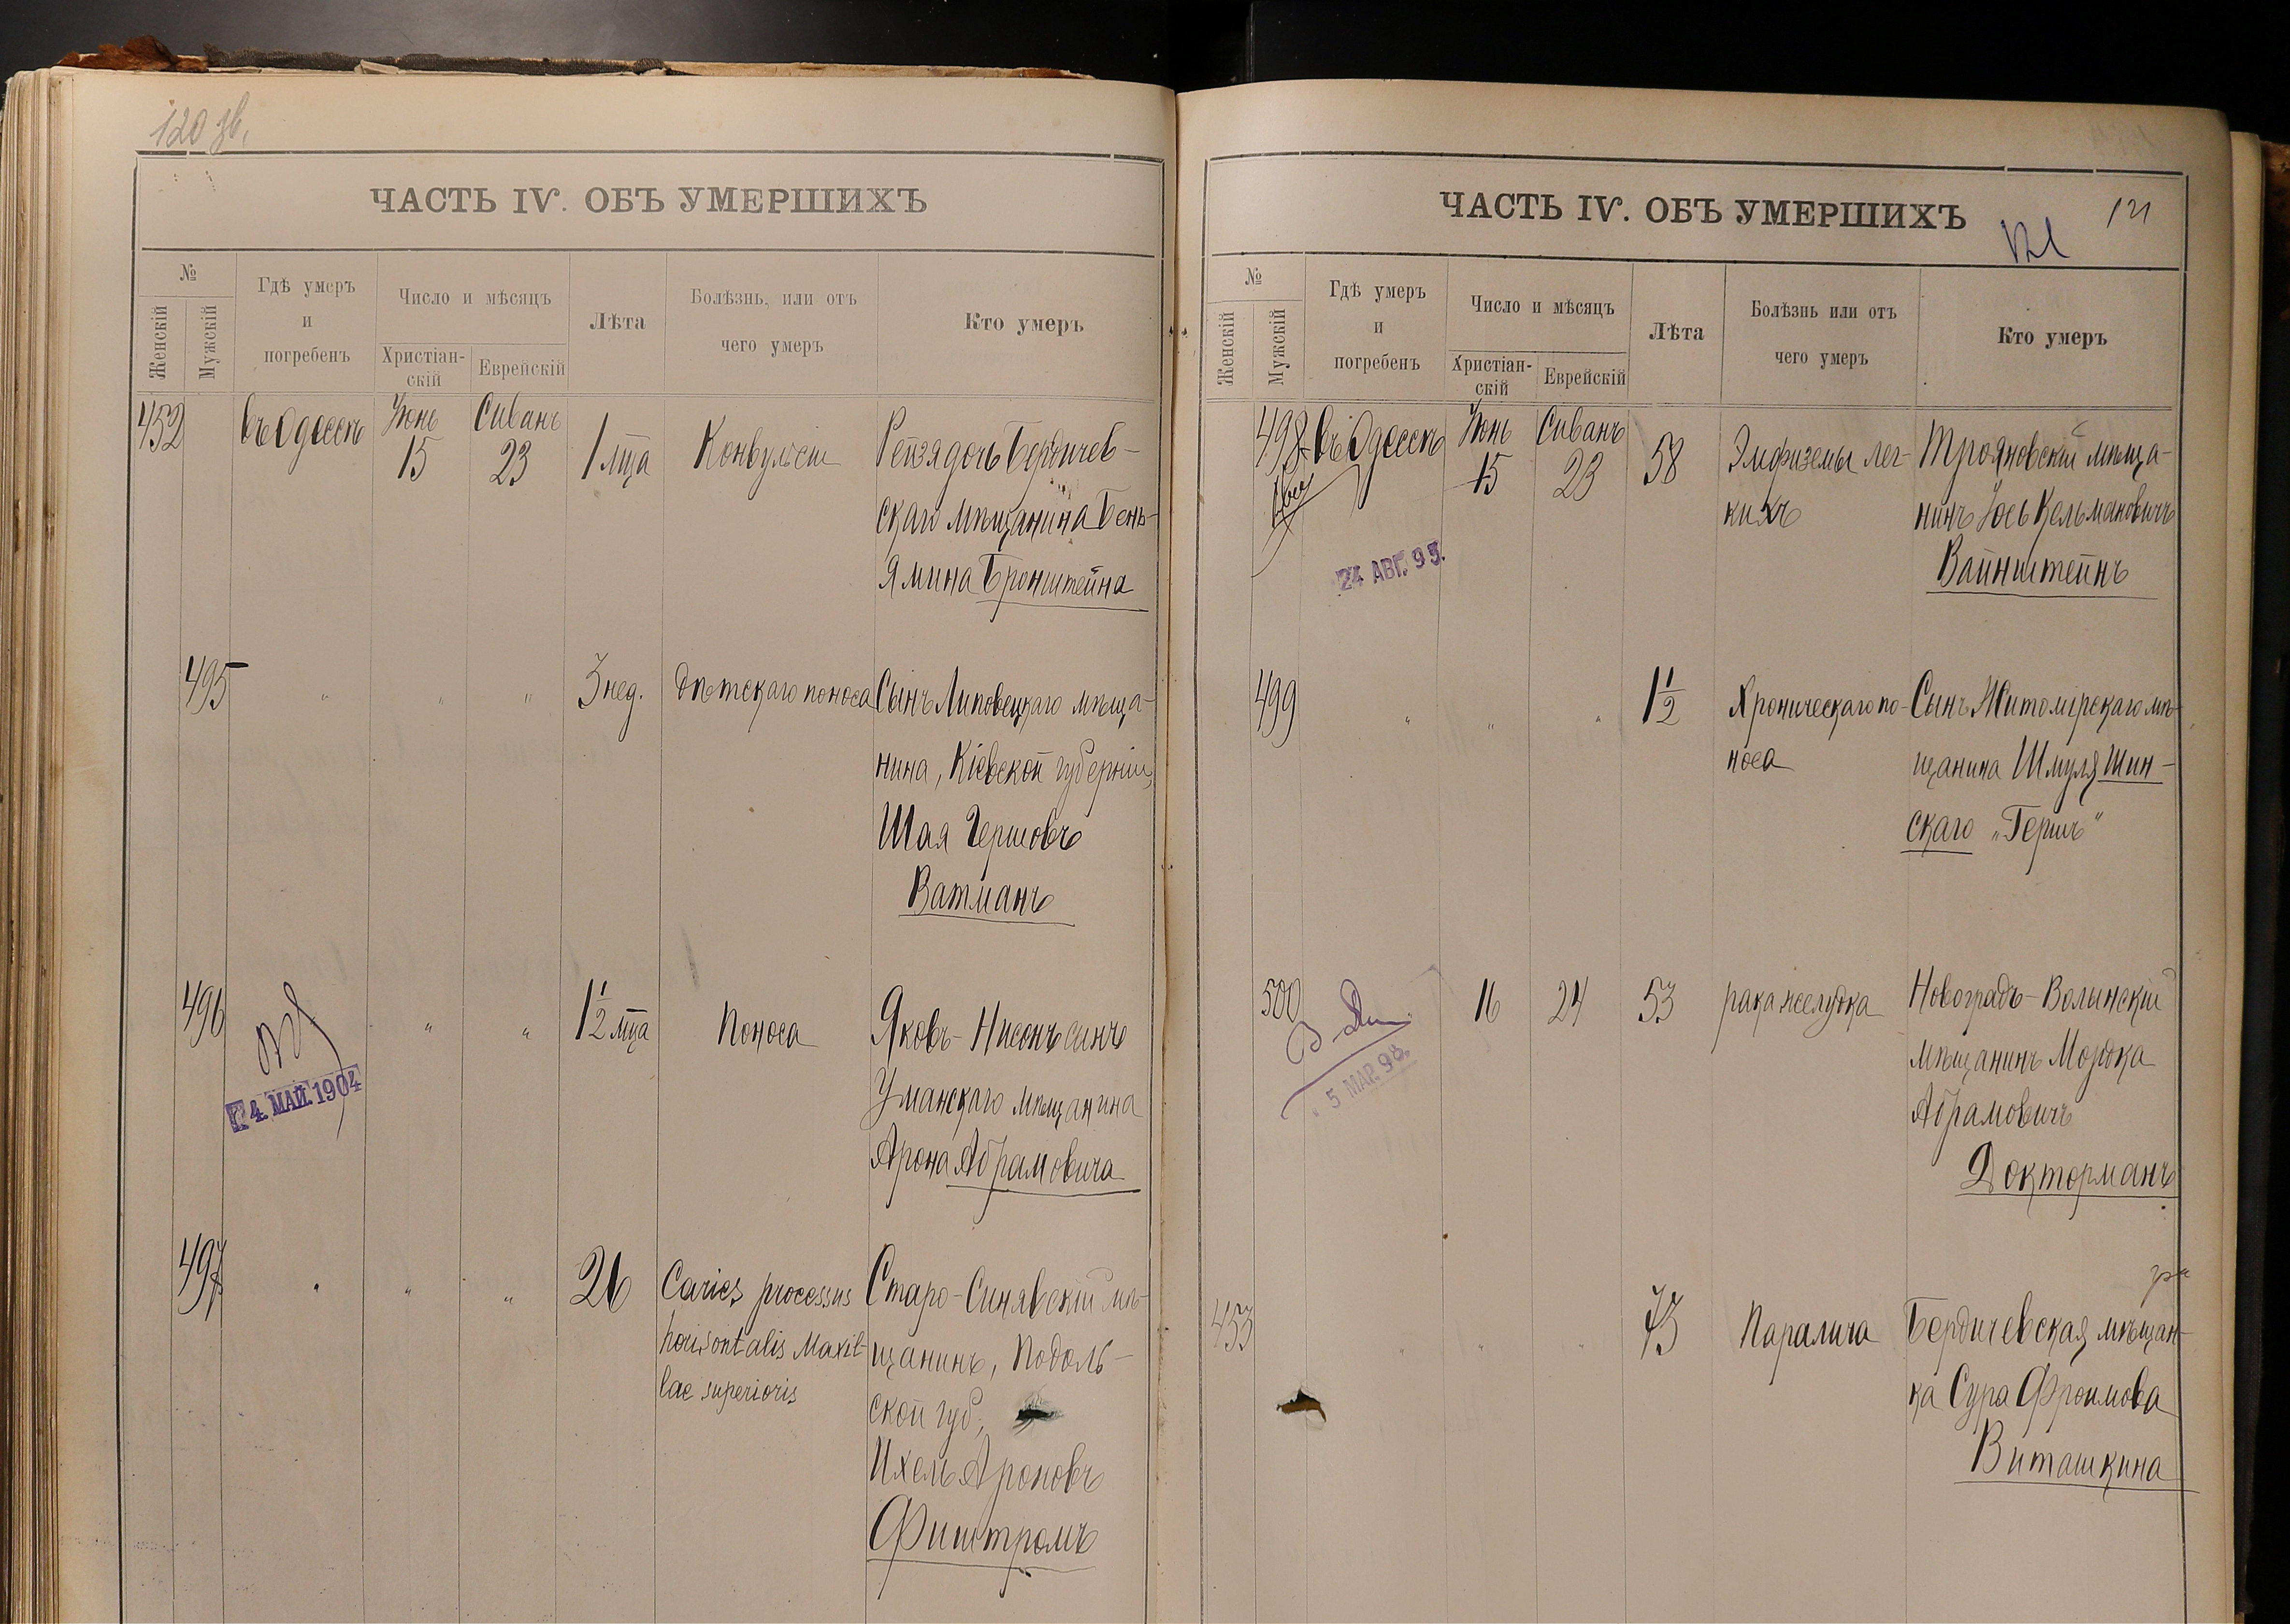 120 зв.
ЧАСТЬ IV. ОБЪ УМЕРШИХЪ
№
Женскій
Мужскій
Гдѣ умеръ
и
погребенъ
Число и мѣсяцъ
Христіан-
скій
Еврейскій
Лѣта
Болѣзнь, или отъ
чего умеръ
Кто умеръ
452
въ Одессѣ
Іюнь
15
Сиванъ
23
1 мца
Конвульсіи
Бердичев-
скаго мѣщанина Бень-
ямина Бронштейна
495
"
"
"
3 нед.
дѣтскаго поноса
Сынъ Липовецкаго мѣща-
нина, Кіевской губерніи,
Шая Гершовъ
Ватманъ
496
4. МАЙ. 1904
"
"
1 1/2 мца
Поноса
Яковъ-Нисонъ сынъ
Уманскаго мѣщанина
Арона Абрамовича
497
"
"
"
26
Caries processus
horisontalis Maxil-
lae superioris
Старо-Синявскій мѣ-
щанинъ, Подоль-
ской губ.,
Ихель Ароновъ
Фиштромъ
ЧАСТЬ IV. ОБЪ УМЕРШИХЪ
121
№
Женскій
Мужскій
Гдѣ умеръ
и
погребенъ
Число и мѣсяцъ
Христіан-
скій
Еврейскій
Лѣта
Болѣзнь или отъ
чего умеръ
Кто умеръ
498
въ Одессѣ
24 АВГ. 95.
Іюнь
15
Сиванъ
23
58
Эмфиземы лег-
кихъ
Трояновскій мѣща-
нинъ Іось Кельмановичъ
Вайнштейнъ
499
"
"
"
1 1/2
Хроническаго по-
носа
Сынъ Житомірскаго мѣ-
щанина Шмуля Шин-
скаго „Гершъ"
500
5 МАР. 98.
16
24
53
рака желудка
Новоградъ-Волынскій
мѣщанинъ Мордка
Абрамовичъ
Докторманъ
453
"
"
"
73
Паралича
Бердичевская мѣщан-
ка Сура Фроимова
Виташкина